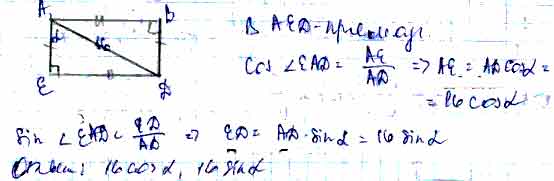 A B
α 16
E D
В AED - прямоуг.
Cos ∠EAD = AE/AD => AE = AD cosα =
= 16 cosα
Sin ∠EAD = ED/AD => ED = AD · sinα = 16 sinα
Ответ: 16 cosα, 16 sinα